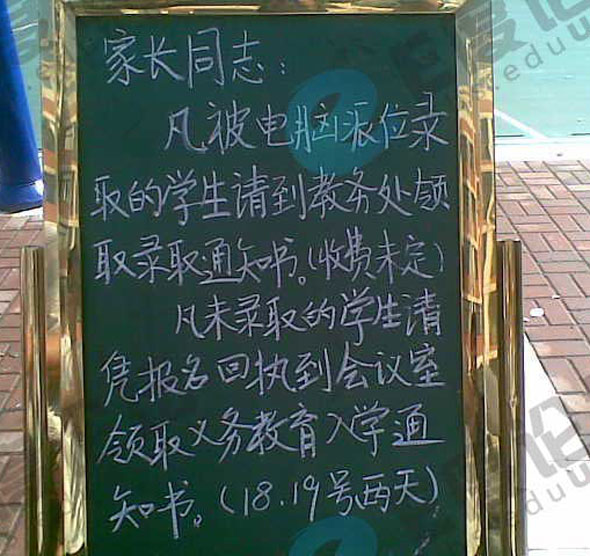 家长同志：
凡被电脑派位录
取的学生请到教务处领
取录取通知书。(收费未定)
凡未录取的学生请
凭报名回执到会议室
领取义务教育入学通
知书。(18.19号两天)